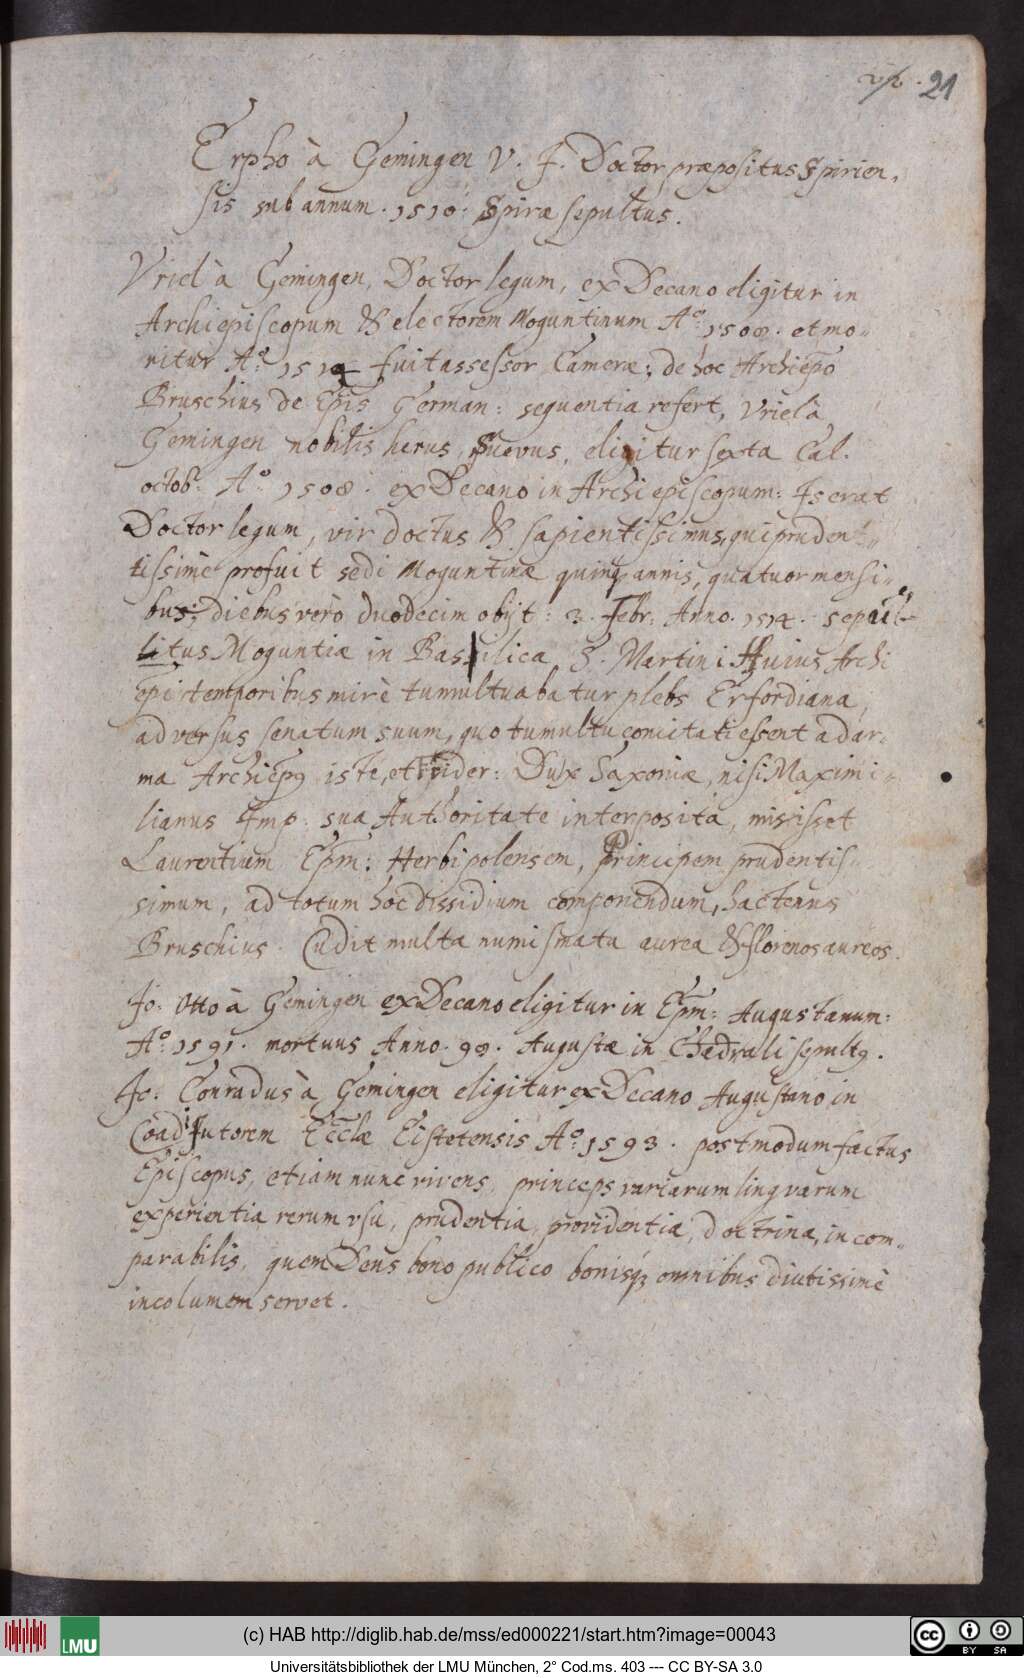 21
Erpho à Gemingen V. J. Doctor præpositus Spirien„
sis sub annum. 1510. Spiræ sepultus.
Vriel à Gemingen, Doctor legum, ex Decano eligitur in
Archiepiscopum & electorem Moguntinum Aº: 1508. et mo„
ritur Aº. 1514 fuit assessor Cameræ; de hoc Archiepo
Bruschius de Epis German: sequentia refert, Vriel à
Gemingen nobilis herus, Suevus, eligitur sexta Cal.
octob: Aº. 1508. ex Decano in Archiepiscopum: Is erat
Doctor legum, vir doctus & sapientissimus, qui pruden„
tissimè profuit sedi Moguntinæ quinq annis, quatuor mensi„
bus; diebus verò duodecim obijt: 3. Febr: Anno. 1514. sepul„
tus Moguntiæ in Basilica S. Martini Huius Archi
epi temporibus mirè tumultuabatur plebs Erfordiana,
adversus senatum suum, quo tumultu concitati essent ad ar„
ma Archiepus iste, et Frider: Dux Saxoniæ, nisi Maximi„
lianus Imp: sua Authoritate interposita, misisset
Laurentium Epm: Herbipolensem, Principem prudentis„
simum, ad totum hoc dissidium componendum, hactenus
Bruschius. Cudit multa numismata aurea & florenos aureos.
Jo: Otto à Gemingen ex Decano eligitur in Epm: Augustanum:
Aº: 1591. mortuus Anno. 98. Augustæ in Cathedrali sepultus.
Jo: Conradus à Gemingen eligitur ex Decano Augustano in
Coadiutorem Eccłæ Eistetensis Aº: 1593. postmodum factus
Episcopus, etiam nunc vivens, princeps variarum linguarum
experientia rerum vsu, prudentia, providentia, doctrina, incom„
parabilis, quem Deus bono publico bonisq; omnibus diutissimè
incolumem servet.
(c) HAB http://diglib.hab.de/mss/ed000221/start.htm?image=00043
LMU
Universitätsbibliothek der LMU München, 2° Cod.ms. 403 --- CC BY-SA 3.0
cc BY SA